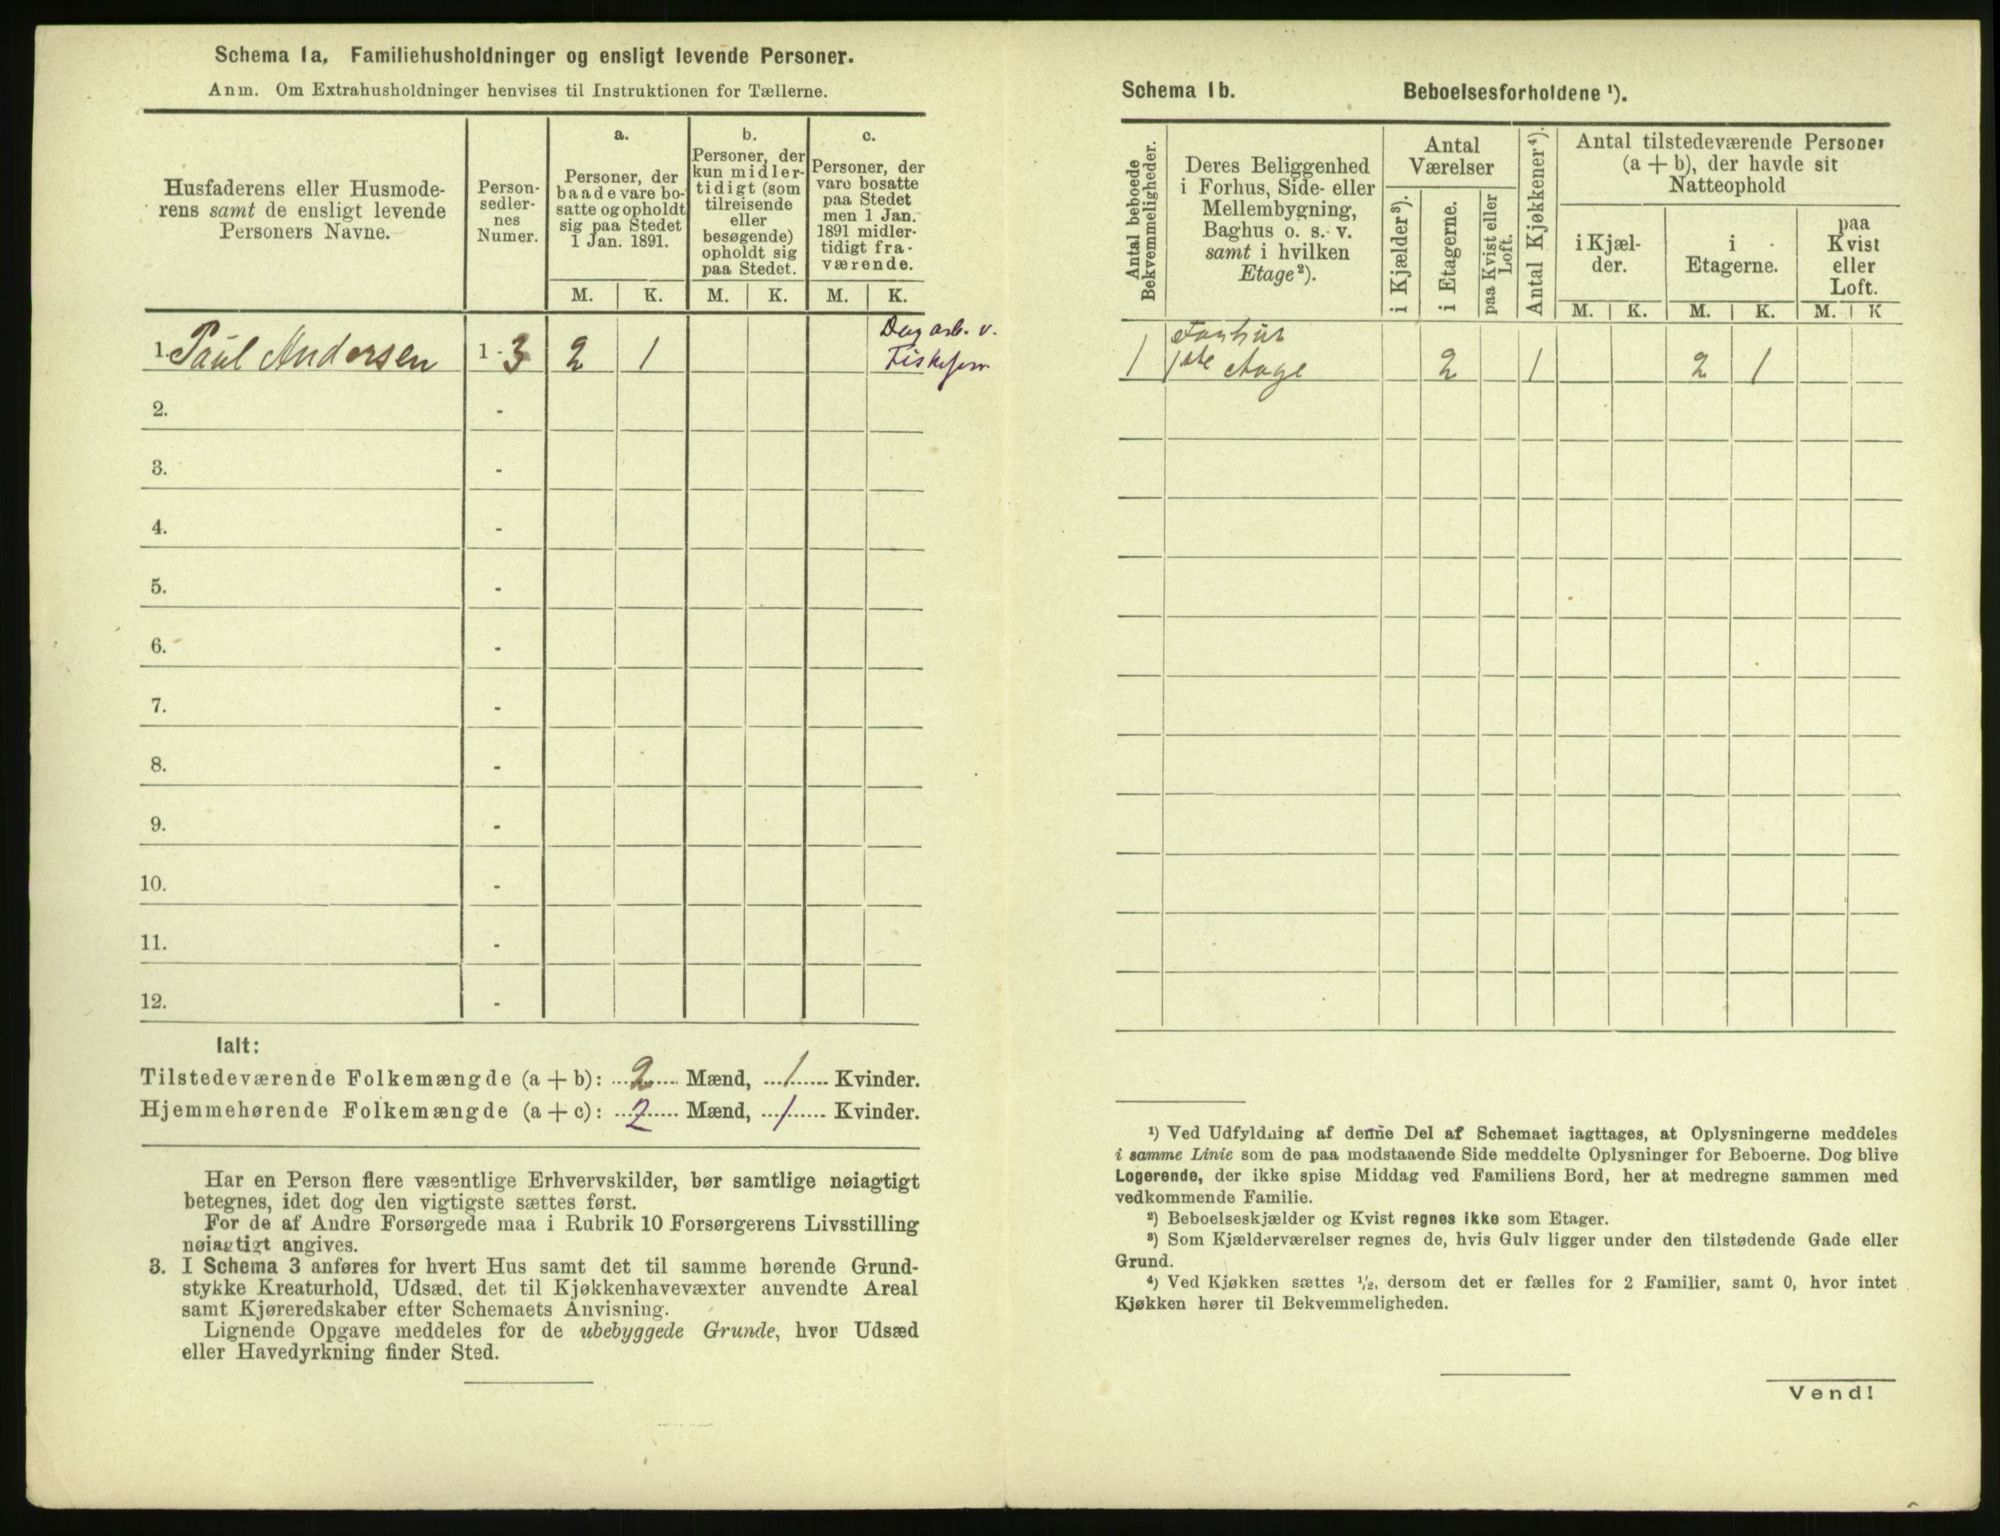 Schema 1a, Familiehusholdninger og ensligt levende Personer.
Anm. Om Extrahusholdninger henvises til Instruktionen for Tællerne.
Husfaderens eller Husmode-
rens samt de ensligt levende
Personers Navne.
Person-
sedler-
nes
Numer.
a.
Personer, der
baade vare bo-
satte og opholdt
sig paa Stedet
1 Jan. 1891.
b.
Personer, der
kun midler-
tidigt (som
tilreisende
eller
besøgende)
opholdt sig
paa Stedet.
c.
Personer, der
vare bosatte
paa Stedet
men 1 Jan.
1891 midler-
tidigt fra-
værende.
M. K. M. K. M. K.
1. Paul Andersen 1 - 3 2 1
Dagarb. v.
2. -
3. -
4. -
5. -
6. -
7. -
8. -
9. -
10. -
11. -
12. -
Ialt:
Tilstedeværende Folkemængde (a + b): 2 Mænd, 1 Kvinder.
Hjemmehørende Folkemængde (a + c): 2 Mænd, 1 Kvinder.
Har en Person flere væsentlige Erhvervskilder, bør samtlige nøiagtigt
betegnes, idet dog den vigtigste sættes først.
For de af Andre Forsørgede maa i Rubrik 10 Forsørgerens Livsstilling
nøiagtigt angives.
3. I Schema 3 anføres for hvert Hus samt det til samme hørende Grund-
stykke Kreaturhold, Udsæd, det til Kjøkkenhavevæxter anvendte Areal
samt Kjøreredskaber efter Schemaets Anvisning.
Lignende Opgave meddeles for de ubebyggede Grunde, hvor Udsæd
eller Havedyrkning finder Sted.
Schema 1b. Beboelsesforholdene ¹).
Antal beboede
Bekvemmeligheder.
Deres Beliggenhed
i Forhus, Side- eller
Mellembygning,
Baghus o. s. v.
samt i hvilken
Etage²).
Antal
Værelser
i Kjælder³).
i Etagerne.
paa Kvist eller
Loft.
Antal Kjøkkener⁴).
Antal tilstedeværende Personer
(a + b), der havde sit
Natteophold
i Kjæl-
der.
i
Etagerne.
paa
Kvist
eller
Loft.
M. K. M. K. M. K
Forhus
1 1ste Etage 2 1 2 1
¹) Ved Udfyldning af denne Del af Schemaet iagttages, at Oplysningerne meddeles
i samme Linie som de paa modstaaende Side meddelte Oplysninger for Beboerne. Dog blive
Logerende, der ikke spise Middag ved Familiens Bord, her at medregne sammen med
vedkommende Familie.
²) Beboelseskjælder og Kvist regnes ikke som Etager.
³) Som Kjælderværelser regnes de, hvis Gulv ligger under den tilstødende Gade eller
Grund.
⁴) Ved Kjøkken sættes ½, dersom det er fælles for 2 Familier, samt 0, hvor intet
Kjøkken hører til Bekvemmeligheden.
Vend!